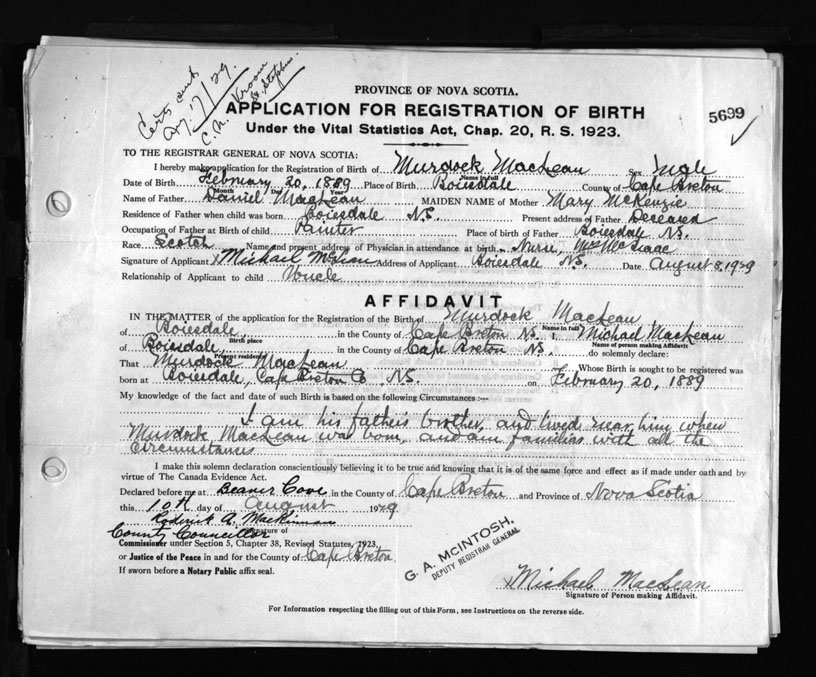 Certs sent
Aug. 17/29.
C. N. Vroom
St. Stephen
PROVINCE OF NOVA SCOTIA.
APPLICATION FOR REGISTRATION OF BIRTH
5699
Under the Vital Statistics Act, Chap. 20, R. S. 1923.
TO THE REGISTRAR GENERAL OF NOVA SCOTIA:
I hereby make application for the Registration of Birth of Murdock MacLean Sex Male
Name in full
Date of Birth February 20, 1889 Place of Birth Boisdale County of Cape Breton
Month Day Year
Name of Father Daniel MacLean MAIDEN NAME of Mother Mary McKenzie
Residence of Father when child was born Boisdale N.S. Present address of Father Deceased
Occupation of Father at Birth of child Painter Place of birth of Father Boisdale N.S.
Race Scotch Name and present address of Physician in attendance at birth Nurse, Mrs McIsaac
Signature of Applicant x Michael McLean Address of Applicant Boisdale N.S. Date August 8, 1929
Relationship of Applicant to child Uncle
AFFIDAVIT
IN THE MATTER of the application for the Registration of the Birth of Murdock MacLean
Name in full
of Boisdale, in the County of Cape Breton N.S. I, Michael MacLean
Birth place Name of person making Affidavit
of Boisdale in the County of Cape Breton N.S. do solemnly declare:
Present residence
That Murdock MacLean Whose Birth is sought to be registered was
born at Boisdale, Cape Breton Co. N.S. on February 20, 1889
My knowledge of the fact and date of such Birth is based on the following Circumstances :—
I am his father's brother, and lived near him when
Murdock MacLean was born, and am familiar with all the
circumstances
I make this solemn declaration conscientiously believing it to be true and knowing that it is of the same force and effect as if made under oath and by
virtue of The Canada Evidence Act.
Declared before me at Beaver Cove in the County of Cape Breton and Province of Nova Scotia
this 10th day of August 1929
Roderick A. MacKinnon
Signature of
County Councillor
Commissioner under Section 5, Chapter 38, Revised Statutes, 1923,
or Justice of the Peace in and for the County of Cape Breton
If sworn before a Notary Public affix seal.
G. A. McINTOSH,
DEPUTY REGISTRAR GENERAL
x Michael MacLean
Signature of Person making Affidavit.
For Information respecting the filling out of this Form, see Instructions on the reverse side.